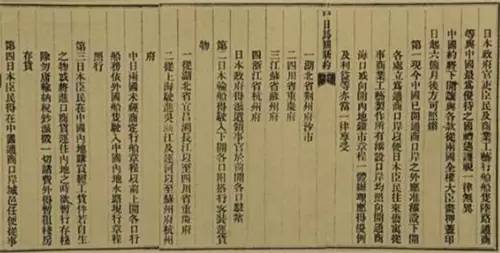 日本政府官吏臣民及商業工藝行船船隻陸路通商
等與中國最為優待之國禮遇護視一律無異
中國約將下開讓與各款從兩國全權大臣畫押蓋印
日起六個月後方可照辦
第一現今中國已開通商口岸之外應准添設下開
各處立為通商口岸以便日本臣民往來僑寓從
事商業工藝製作所有添設口岸均照向開通商
海口或向開內地鎮市章程一體辦理應得優例
及利益等亦當一律享受
日馬關新約
一湖北省荊州府沙市
二四川省重慶府
三江蘇省蘇州府
四浙江省杭州府
日本政府得派遣領事官於前開各口駐紮
第二日本輪船得駛入下開各口附搭行客裝運貨
物
一從湖北省宜昌溯長江以至四川省重慶府
二從上海駛進吳淞江及運河以至蘇州府杭州
府
中日兩國未經商定行船章程以前上開各口行
船務依外國船隻駛入中國內地水路現行章程
照行
第三日本臣民得在中國內地購買經工貨件若自生
之物或將進口商貨運往內地之時欲暫行存棧
除勿庸輸納稅鈔派徵一切諸費外得暫租棧房
存貨
第四日本臣民得在中國通商口岸城邑任便從事